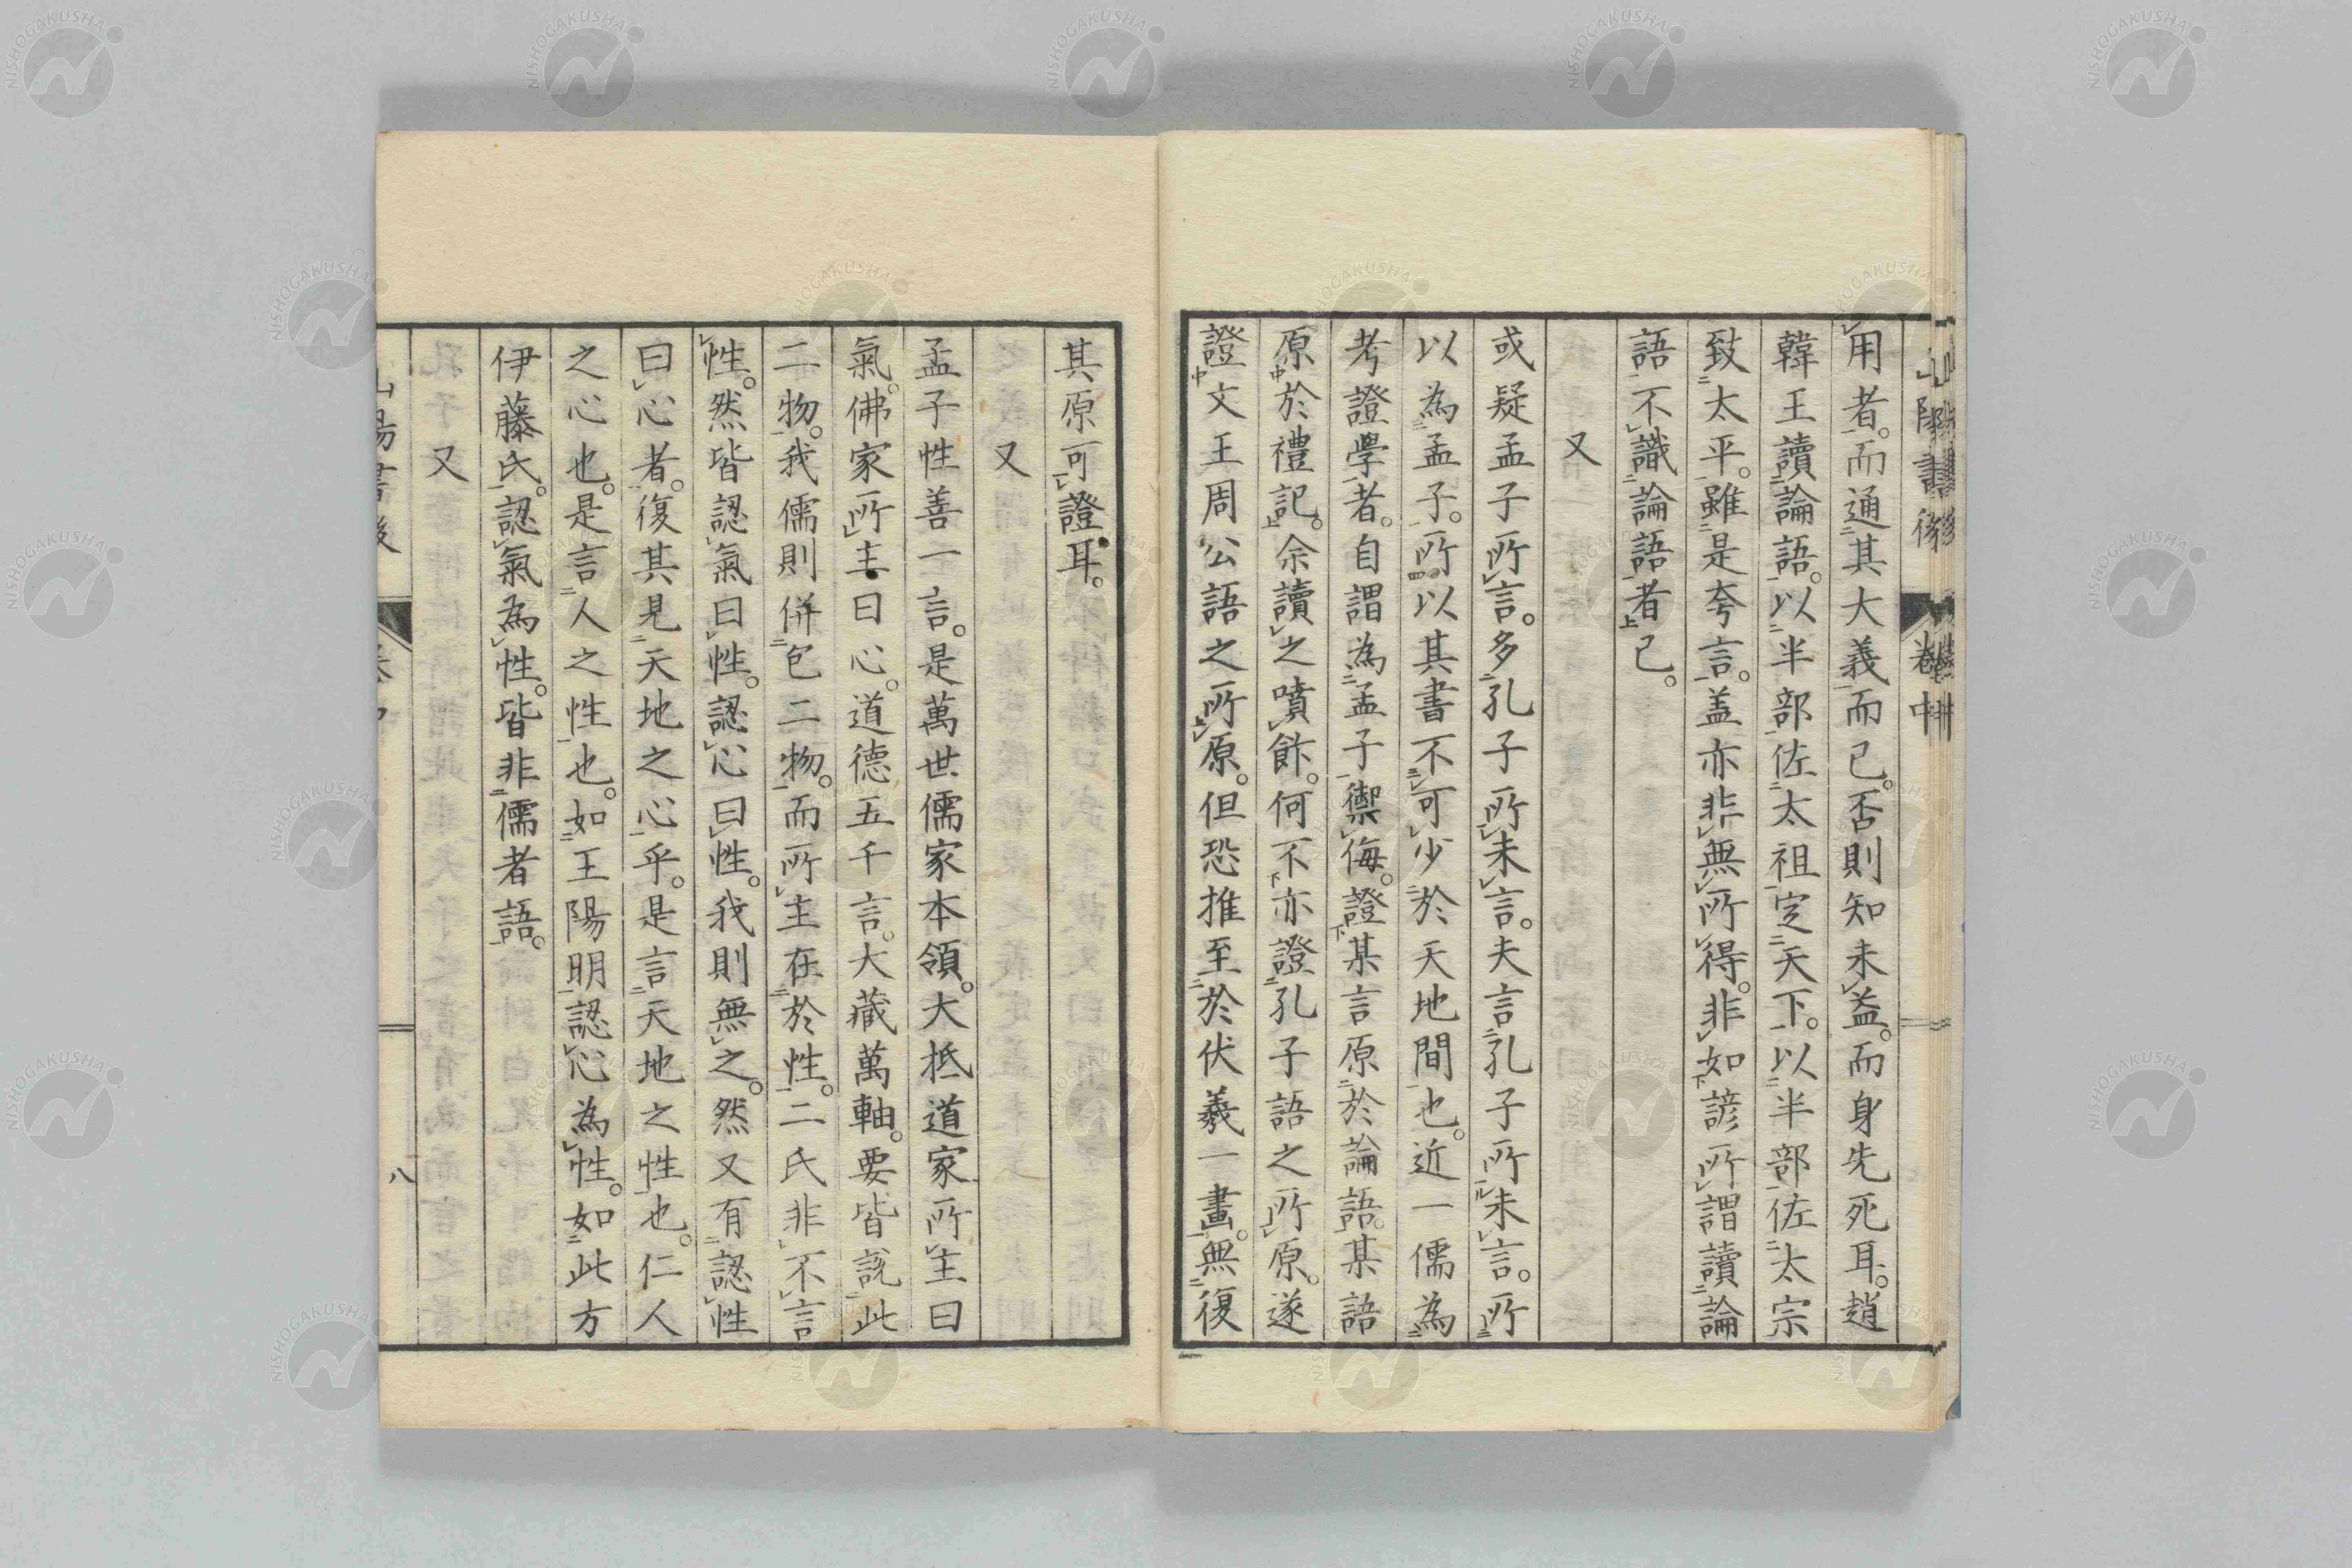 用者。而通其大義而已。否則知未益。而身先死耳。趙
韓王讀論語。以半部佐太祖定天下。以半部佐太宗
致太平。雖是夸言。盖亦非無所得。非如諺所謂讀論
語不識論語者已。
又
或疑孟子所言。多孔子所未言。夫言孔子所未言。所
以為孟子。所以其書不可少於天地間也。近一儒為
考證學者。自謂為孟子禦侮。證某言原於論語。某語
原於禮記。余讀之噴飰。何不亦證孔子語之所原。遂
證文王周公語之所原。但恐推至於伏羲一畫。無復
其原可證耳。
又
孟子性善一言。是萬世儒家本領。大抵道家所主曰
氣。佛家所主曰心。道德五千言。大藏萬軸。要皆説此
二物。我儒則併包二物。而所主在於性。二氏非不言
性。然皆認氣曰性。認心曰性。我則無之。然又有認性
曰心者。復其見天地之心乎。是言天地之性也。仁人
之心也。是言人之性也。如王陽明認心為性。如此方
伊藤氏。認氣為性。皆非儒者語。
又
山陽書後
卷中
八
NISHOGAKUSHA